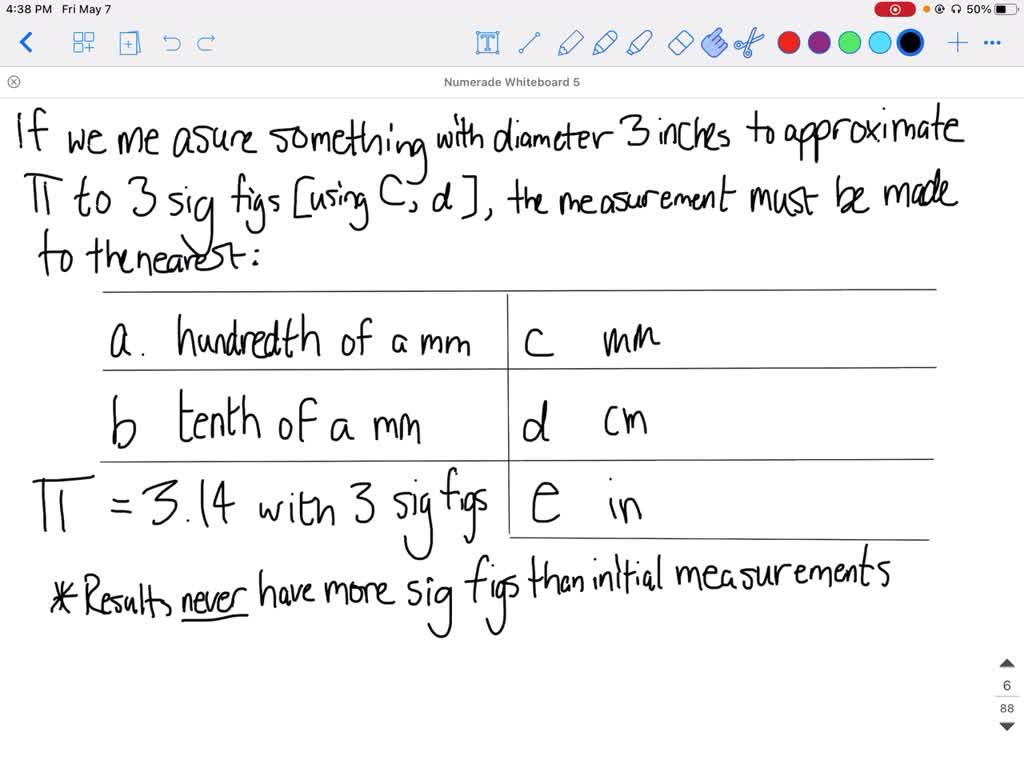 4:38 PM Fri May 7
50%
Numerade Whiteboard 5
If we me asure something with diameter 3 inches to approximate
π to 3 sig figs [using C, d], the measurement must be made
to the nearest:
a. hundredth of a mm
c mm
b tenth of a mm
d cm
π = 3.14 with 3 sig figs
e in
* Results never have more sig figs than initial measurements
6
88